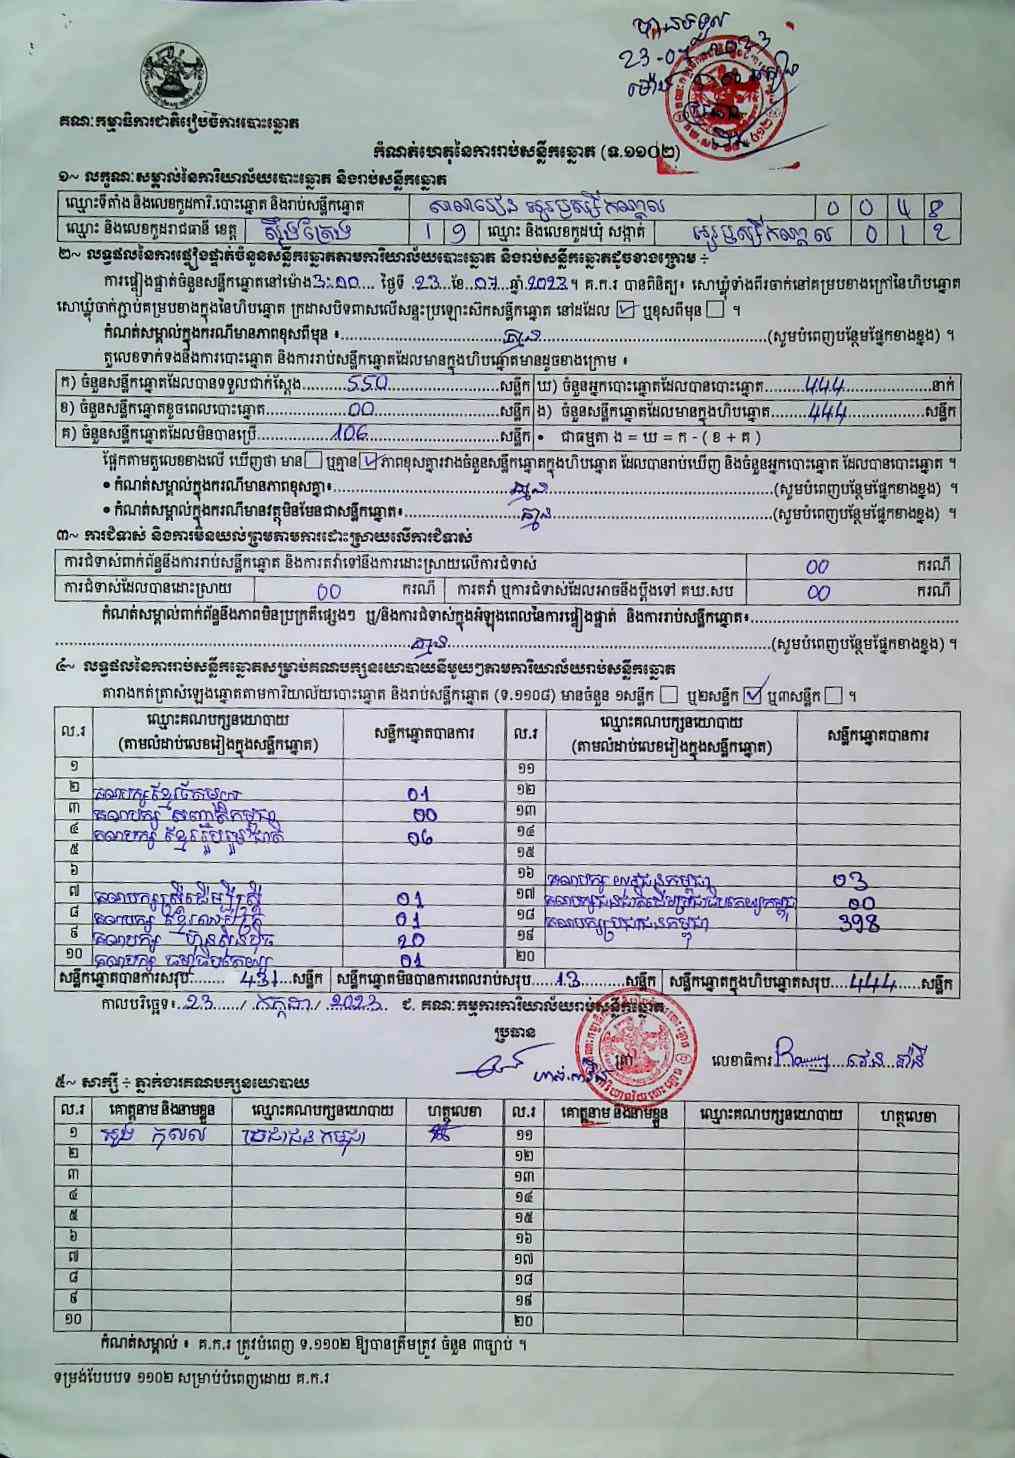 បានទទួល
23-07-2023
គណៈកម្មាធិការជាតិរៀបចំការបោះឆ្នោត
កំណត់ហេតុនៃការរាប់សន្លឹកឆ្នោត (ទ.១១០២)
១~ លក្ខណៈសម្គាល់នៃការិយាល័យបោះឆ្នោត និងរាប់សន្លឹកឆ្នោត
ឈ្មោះទីតាំង និងលេខកូដការិ.បោះឆ្នោត និងរាប់សន្លឹកឆ្នោត សាលារៀន អូរឫស្សីកណ្តាល 0 0 4 8
ឈ្មោះ និងលេខកូដរាជធានី ខេត្ត ស្ទឹងត្រែង 1 9 ឈ្មោះ និងលេខកូដឃុំ សង្កាត់ អូរឫស្សីកណ្តាល 0 1 2
២~ លទ្ធផលនៃការផ្ទៀងផ្ទាត់ចំនួនសន្លឹកឆ្នោតតាមការិយាល័យបោះឆ្នោត និងរាប់សន្លឹកឆ្នោតដូចខាងក្រោម ÷
ការផ្ទៀងផ្ទាត់ចំនួនសន្លឹកឆ្នោតនៅម៉ោង 3:10 ថ្ងៃទី 23 ខែ 07 ឆ្នាំ 2023។ គ.ក.រ បានពិនិត្យ៖ សោឃ្លុំទាំងពីរចាក់នៅគម្របខាងក្រៅនៃហិបឆ្នោត
សោឃ្លុំចាក់ភ្ជាប់គម្របខាងក្នុងនៃហិបឆ្នោត ក្រដាសបិទពាសលើសន្ទះប្រឡោះស៊កសន្លឹកឆ្នោត នៅដដែល ☑ ឬខុសពីមុន ☐ ។
កំណត់សម្គាល់ក្នុងករណីមានភាពខុសពីមុន ៖ គ្មាន (សូមបំពេញបន្ថែមផ្នែកខាងខ្នង) ។
តួលេខទាក់ទងនឹងការបោះឆ្នោត និងការរាប់សន្លឹកឆ្នោតដែលមានក្នុងហិបឆ្នោតមានដូចខាងក្រោម ៖
ក) ចំនួនសន្លឹកឆ្នោតដែលបានទទួលជាក់ស្តែង 550 សន្លឹក ឃ) ចំនួនអ្នកបោះឆ្នោតដែលបានបោះឆ្នោត 444 នាក់
ខ) ចំនួនសន្លឹកឆ្នោតខូចពេលបោះឆ្នោត 00 សន្លឹក ង) ចំនួនសន្លឹកឆ្នោតដែលមានក្នុងហិបឆ្នោត 444 សន្លឹក
គ) ចំនួនសន្លឹកឆ្នោតដែលមិនបានប្រើ 106 សន្លឹក • ជាធម្មតា ង = ឃ = ក - ( ខ + គ )
ផ្អែកតាមតួលេខខាងលើ ឃើញថា មាន ☐ ឬគ្មាន ☑ ភាពខុសគ្នារវាងចំនួនសន្លឹកឆ្នោតក្នុងហិបឆ្នោត ដែលបានរាប់ឃើញ និងចំនួនអ្នកបោះឆ្នោត ដែលបានបោះឆ្នោត ។
• កំណត់សម្គាល់ក្នុងករណីមានភាពខុសគ្នា៖ គ្មាន (សូមបំពេញបន្ថែមផ្នែកខាងខ្នង) ។
• កំណត់សម្គាល់ក្នុងករណីមានវត្ថុមិនមែនជាសន្លឹកឆ្នោត៖ គ្មាន (សូមបំពេញបន្ថែមផ្នែកខាងខ្នង) ។
៣~ ការជំទាស់ និងការមិនយល់ព្រមតាមការដោះស្រាយលើការជំទាស់
ការជំទាស់ពាក់ព័ន្ធនឹងការរាប់សន្លឹកឆ្នោត និងការតវ៉ាទៅនឹងការដោះស្រាយលើការជំទាស់ 00 ករណី
ការជំទាស់ដែលបានដោះស្រាយ 00 ករណី ការតវ៉ា ឬការជំទាស់ដែលអាចនឹងប្តឹងទៅ គឃ.សប 00 ករណី
កំណត់សម្គាល់ពាក់ព័ន្ធនឹងភាពមិនប្រក្រតីផ្សេងៗ ឬ/និងការជំទាស់ក្នុងអំឡុងពេលនៃការផ្ទៀងផ្ទាត់ និងការរាប់សន្លឹកឆ្នោត៖
គ្មាន (សូមបំពេញបន្ថែមផ្នែកខាងខ្នង) ។
៤~ លទ្ធផលនៃការរាប់សន្លឹកឆ្នោតសម្រាប់គណបក្សនយោបាយនីមួយៗតាមការិយាល័យរាប់សន្លឹកឆ្នោត
តារាងកត់ត្រាសំឡេងឆ្នោតតាមការិយាល័យបោះឆ្នោត និងរាប់សន្លឹកឆ្នោត (ទ.១១០៨) មានចំនួន ១សន្លឹក ☐ ឬ២សន្លឹក ☑ ឬ៣សន្លឹក ☐ ។
ល.រ ឈ្មោះគណបក្សនយោបាយ (តាមលំដាប់លេខរៀងក្នុងសន្លឹកឆ្នោត) សន្លឹកឆ្នោតបានការ ល.រ ឈ្មោះគណបក្សនយោបាយ (តាមលំដាប់លេខរៀងក្នុងសន្លឹកឆ្នោត) សន្លឹកឆ្នោតបានការ
១ ១១
២ 01 ១២
៣ គណបក្ស សញ្ជាតិកម្ពុជា 00 ១៣
៤ គណបក្ស ខ្មែររួបរួមជាតិ 06 ១៤
៥ ១៥
៦ ១៦ គណបក្ស យុវជនកម្ពុជា 03
៧ គណបក្សស្រ្តីដើម្បីស្រ្តី 01 ១៧ 00
៨ គណបក្ស ខ្មែរ 01 ១៨ គណបក្សប្រជាជនកម្ពុជា 398
៩ គណបក្ស ហ៊្វុនស៊ិនប៉ិច 20 ១៩
១០ គណបក្ស ធម្មាធិបតេយ្យ 01 ២០
សន្លឹកឆ្នោតបានការសរុប 431 សន្លឹក សន្លឹកឆ្នោតមិនបានការពេលរាប់សរុប 13 សន្លឹក សន្លឹកឆ្នោតក្នុងហិបឆ្នោតសរុប 444 សន្លឹក
កាលបរិច្ឆេទ៖ 23 / កក្កដា / 2023 ជ. គណៈកម្មការការិយាល័យរាប់សន្លឹកឆ្នោត
ប្រធាន
លេខាធិការ
៥~ សាក្សី ÷ ភ្នាក់ងារគណបក្សនយោបាយ
ល.រ គោត្តនាម និងនាមខ្លួន ឈ្មោះគណបក្សនយោបាយ ហត្ថលេខា ល.រ គោត្តនាម និងនាមខ្លួន ឈ្មោះគណបក្សនយោបាយ ហត្ថលេខា
១ ប្រជាជនកម្ពុជា ១១
២ ១២
៣ ១៣
៤ ១៤
៥ ១៥
៦ ១៦
៧ ១៧
៨ ១៨
៩ ១៩
១០ ២០
កំណត់សម្គាល់ ៖ គ.ក.រ ត្រូវបំពេញ ទ.១១០២ ឱ្យបានត្រឹមត្រូវ ចំនួន ៣ច្បាប់ ។
ទម្រង់បែបបទ ១១០២ សម្រាប់បំពេញដោយ គ.ក.រ